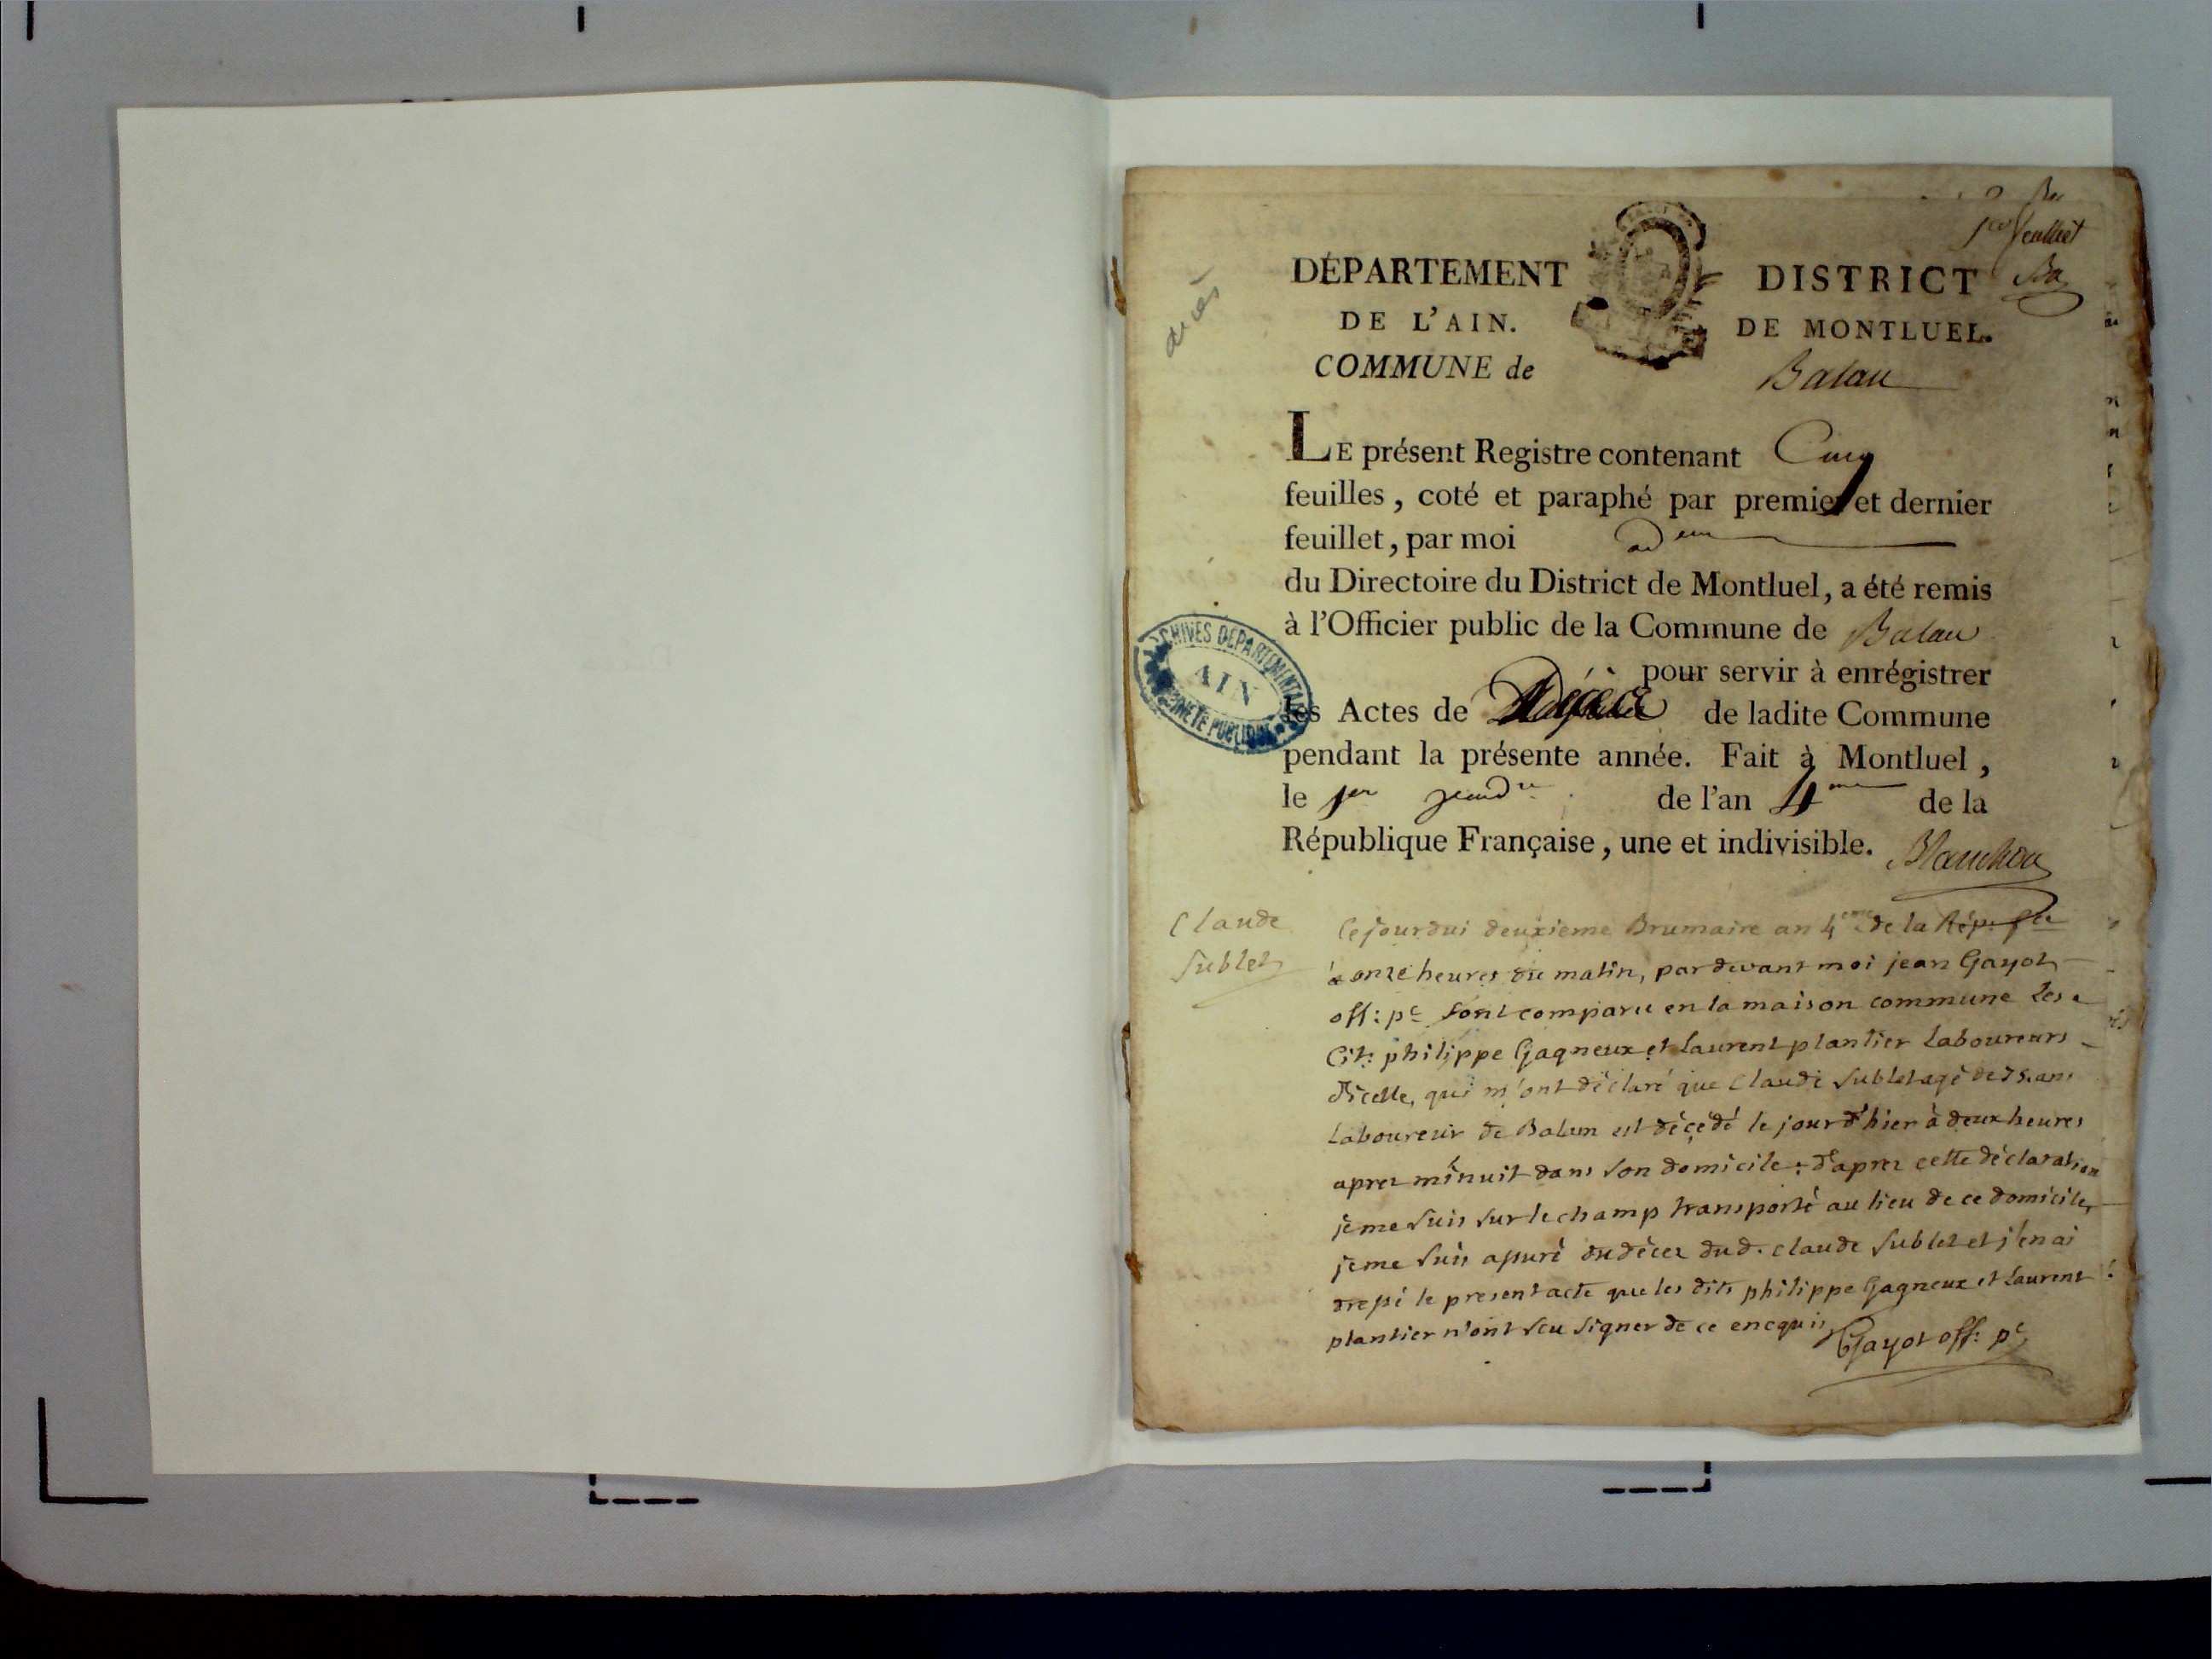 décès
1er feuillet
DÉPARTEMENT
DE L'AIN.
COMMUNE de
DISTRICT
DE MONTLUEL.
Balan
LE présent Registre contenant Cinq
feuilles, coté et paraphé par premier et dernier
feuillet, par moi adeur
du Directoire du District de Montluel, a été remis
à l'Officier public de la Commune de Balan
pour servir à enrégistrer
les Actes de Décès de ladite Commune
pendant la présente année. Fait à Montluel,
le 1er vend.re de l'an 4me de la
République Française, une et indivisible.
Blanchon
ARCHIVES DÉPARTEMENTALES
AIN
PROPRIÉTÉ PUBLIQUE
Claude
Sublet
Cejourdui deuxieme Brumaire an 4eme de la Rép. fse
à onze heures du matin, pardevant moi jean Gayot
off: pc sont comparu en la maison commune Les
Cit: philippe Gagneux et Laurent plantier Laboureurs
d'icelle, qui m'ont déclaré que Claude Sublet agé de 75. ans
Laboureur de Balan est décédé le jour d'hier à deux heures
aprez minuit dans son domicile: d'aprez cette déclaration
je me suis sur le champ transporté au lieu de ce domicile,
je me suis assuré du décez dud. claude Sublet et j'en ai
dressé le present acte que les dits philippe Gagneux et Laurent
plantier n'ont sçu signer de ce enequis
Gayot off: pc